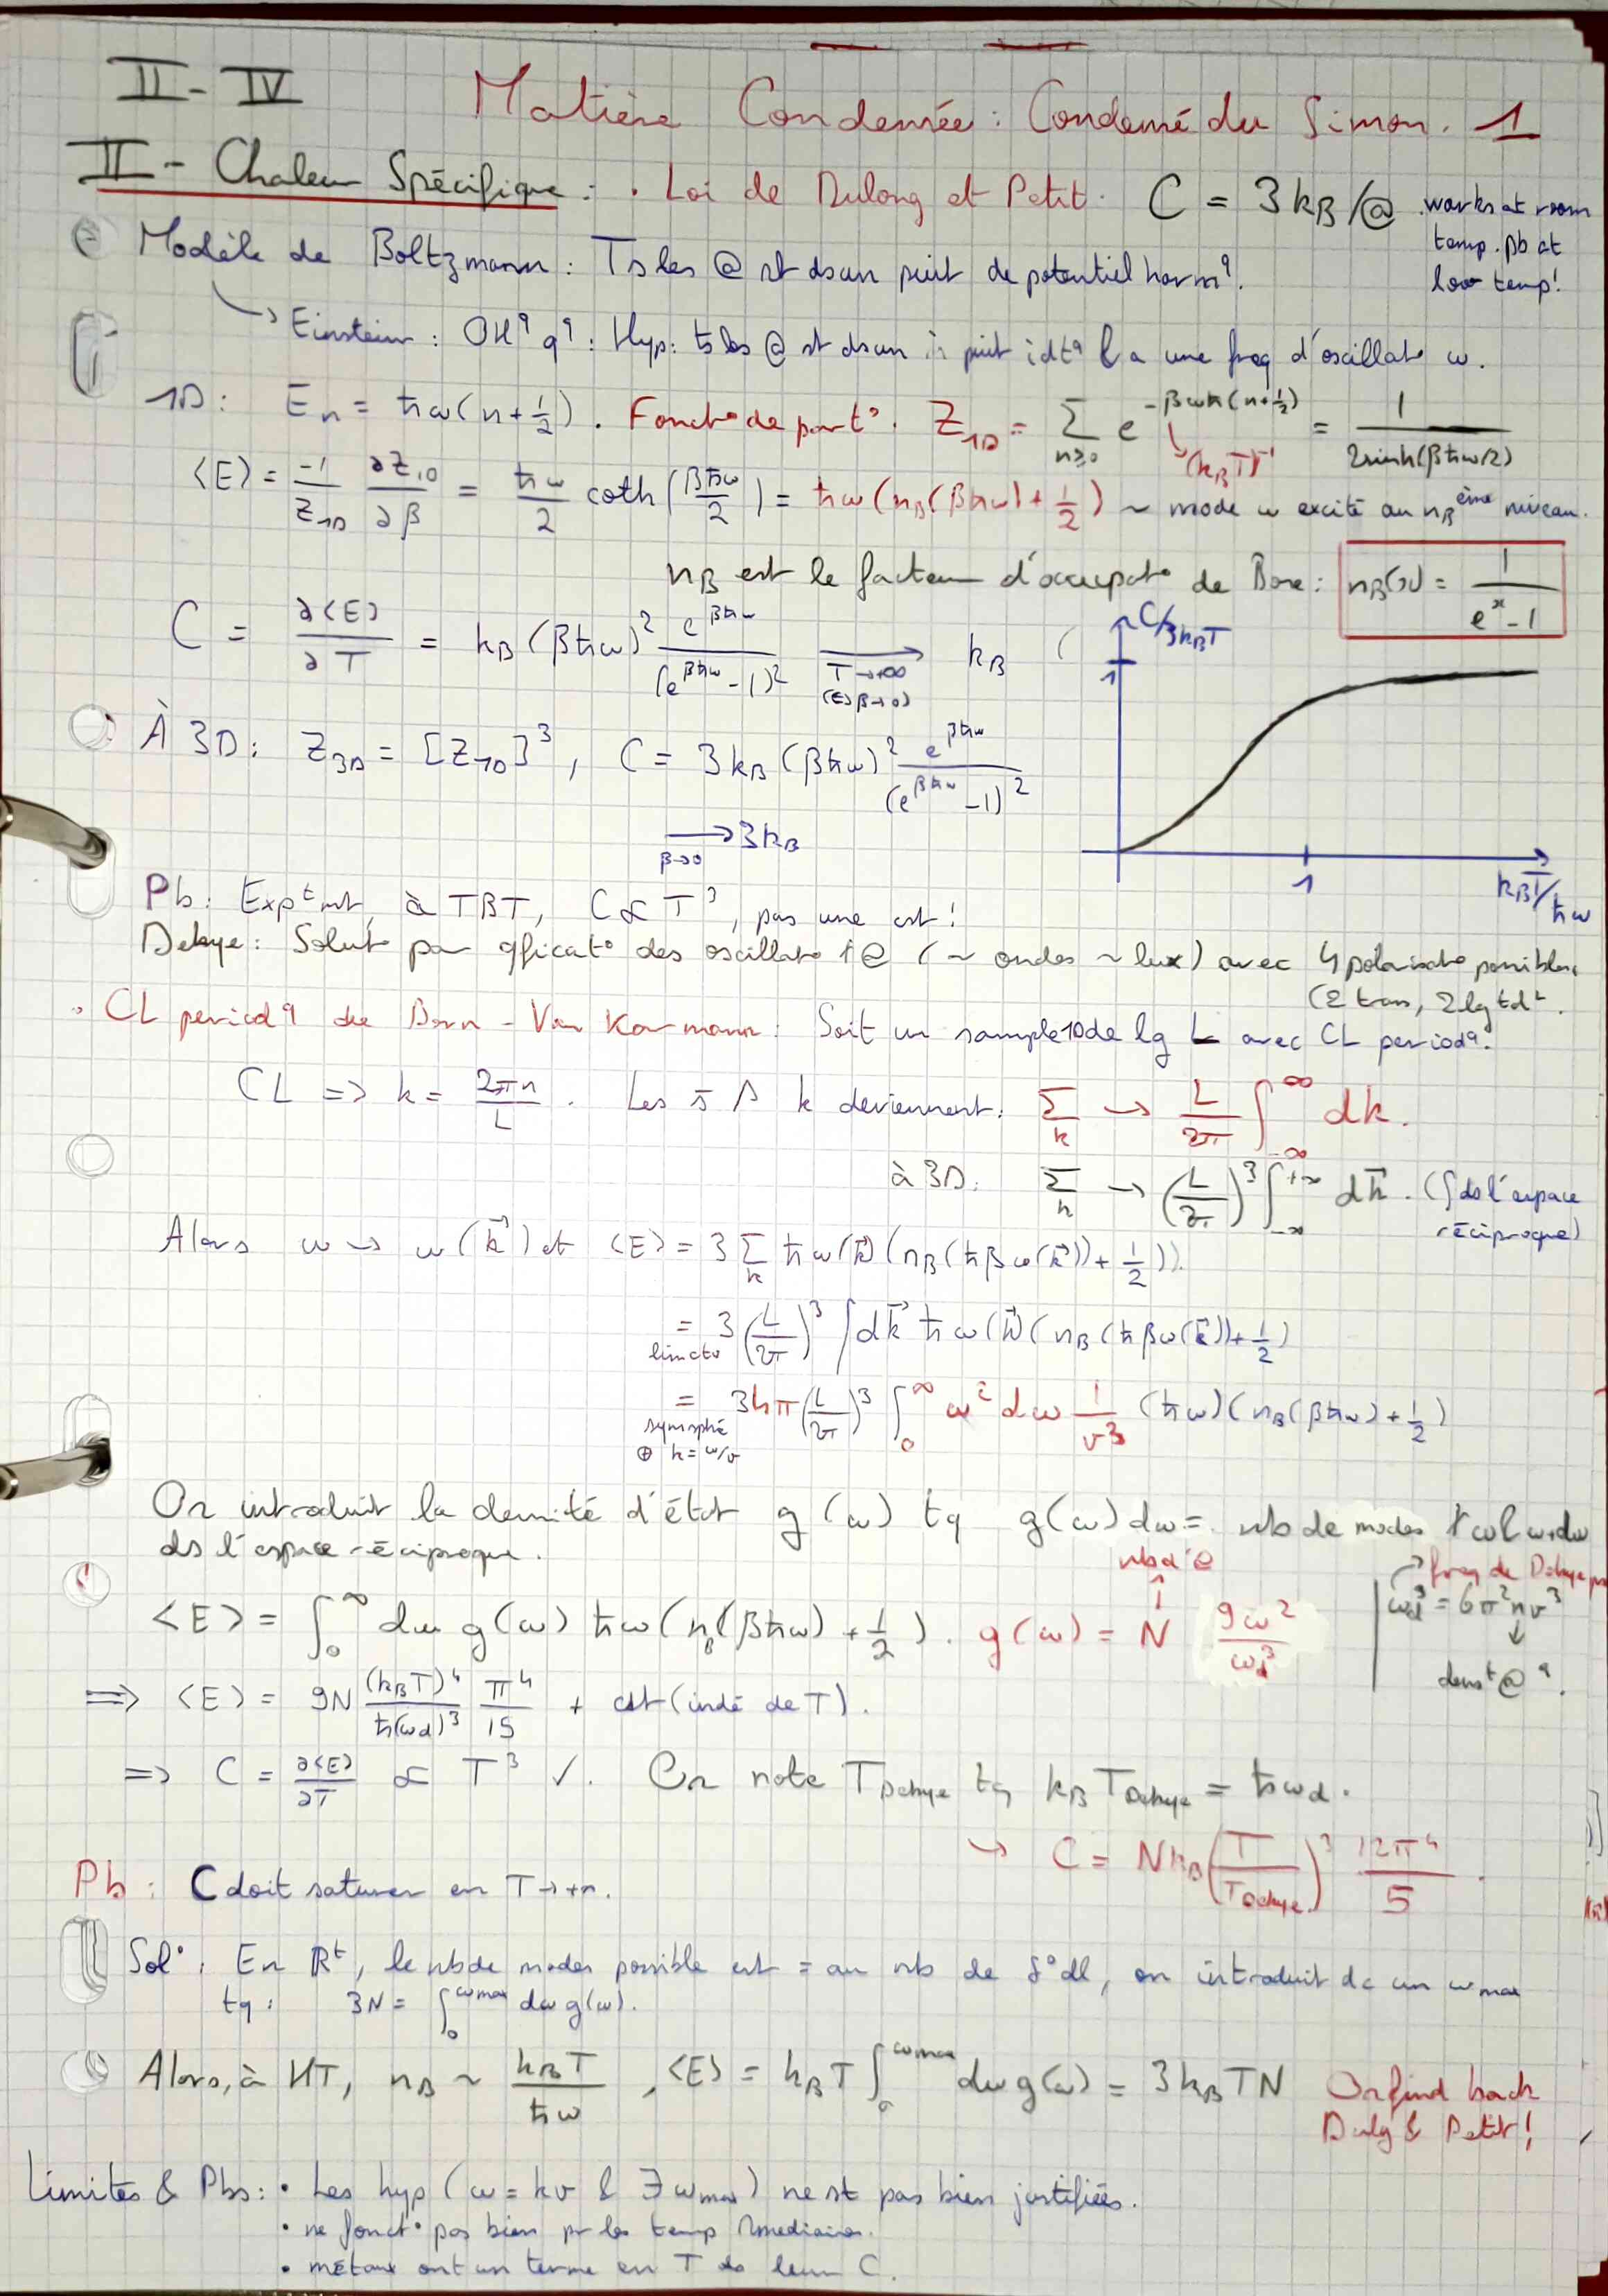 II - IV
Matière Condensée : Condensé du Simon. 1
II - Chaleur Spécifique : • Loi de Dulong et Petit. C = 3k_B/@ . works at room temp. pb at low temp!
Modèle de Boltzmann : Ts les @ st ds un puit de potentiel harm^q.
↳ Einstein : OH^q q^q : Hyp: ts les @ st ds un puit idt^q & a une freq d'oscillat° ω.
1D : E_n = ħω(n + 1/2). Fonct° de part° : Z_1D = Σ_{n≥0} e^{-βωħ(n+1/2)} = 1/(2sinh(βħω/2))
(k_B T)^{-1}
<E> = -1/Z_1D ∂Z_1D/∂β = ħω/2 coth(βħω/2) = ħω(n_B(βħω) + 1/2) ~ mode ω excité au n_B^ème niveau.
n_B est le facteur d'occupat° de Bose : n_B(x) = 1/(e^x - 1)
C = ∂<E>/∂T = k_B (βħω)² e^{βħω}/(e^{βħω} - 1)² → k_B (
T→+∞
(⇔ β→0)
C/3k_BT
1
1
k_BT/ħω
À 3D : Z_3D = [Z_1D]³, C = 3k_B (βħω)² e^{βħω}/(e^{βħω} - 1)²
→ 3k_B
β→0
Pb : Exp^t mt, à TBT, C ∝ T³, pas une cst !
Debye : Solut° par qficat° des oscillat° @ (~ ondes ~ lux) avec 4 polarisat° possibles
(2 tran, 2 lgtd^l.
• CL period^q de Born - Von Karmann : Soit un sample 1D de lg L avec CL period^q.
CL => k = 2πn/L . Les Σ s/ k deviennent : Σ_k → L/2π ∫_{-∞}^{∞} dk.
à 3D : Σ_k → (L/2π)³ ∫_{-∞}^{+∞} dk⃗ . (∫ ds l'espace
réciproque)
Alors ω → ω(k⃗) et <E> = 3 Σ_k ħω(k⃗) (n_B(ħβω(k⃗)) + 1/2)).
= 3 (L/2π)³ ∫ dk⃗ ħω(k⃗) (n_B(ħβω(k⃗)) + 1/2)
lim ct°
= 3 4π (L/2π)³ ∫_0^∞ ω² dω 1/v³ (ħω)(n_B(βħω) + 1/2)
sym sphé
⊕ k = ω/v
On introduit la densité d'état g(ω) tq g(ω)dω = nb de modes ω & ω+dω
ds l'espace réciproque.
nb d'@
↑
freq de Debye
<E> = ∫_0^∞ dω g(ω) ħω (n_B(βħω) + 1/2). g(ω) = N 9ω²/ω_d³
ω_d³ = 6π²nv³
↓
dens^t @^q.
=> <E> = 9N (k_BT)⁴/ħ(ω_d)³ π⁴/15 + cst (indé de T).
=> C = ∂<E>/∂T ∝ T³ ✓. On note T_Debye tq k_B T_Debye = ħω_d.
↳ C = Nk_B (T/T_Debye)³ 12π⁴/5 .
Pb : C doit saturer en T→+∞.
Sol° : En R^t, le nb de modes possible est = au nb de d°dl, on introduit dc un ω_max
tq : 3N = ∫_0^{ωmax} dω g(ω).
Alors, à HT, n_B ~ k_BT/ħω , <E> = k_BT ∫_0^{ωmax} dω g(ω) = 3k_BTN On find back
Dulg & Petit !
Limites & Pbs : • Les hyp (ω = kv & ∃ ω_max) ne st pas bien justifiées.
• ne fonct° pas bien pr les temp
• métaux ont un terme en T ds leur C.